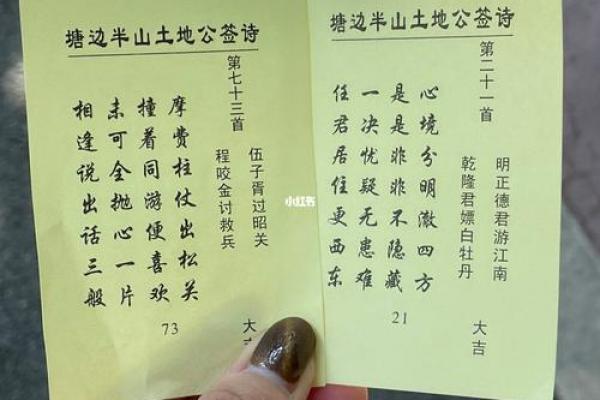 塘边半山土地公签诗
第七十三首
伍子胥过昭关
程咬金讨救兵
摩费柱仗出松关
撞着同游便喜欢
未可全抛心一片
相逢说出话三般
73
大吉
塘边半山土地公签诗
第二十一首
明正德君游江南
乾隆君嫖白牡丹
心境分明澈四方
是是非非不隐藏
一决忧疑无患难
任君居住更西东
21
大吉
小红书